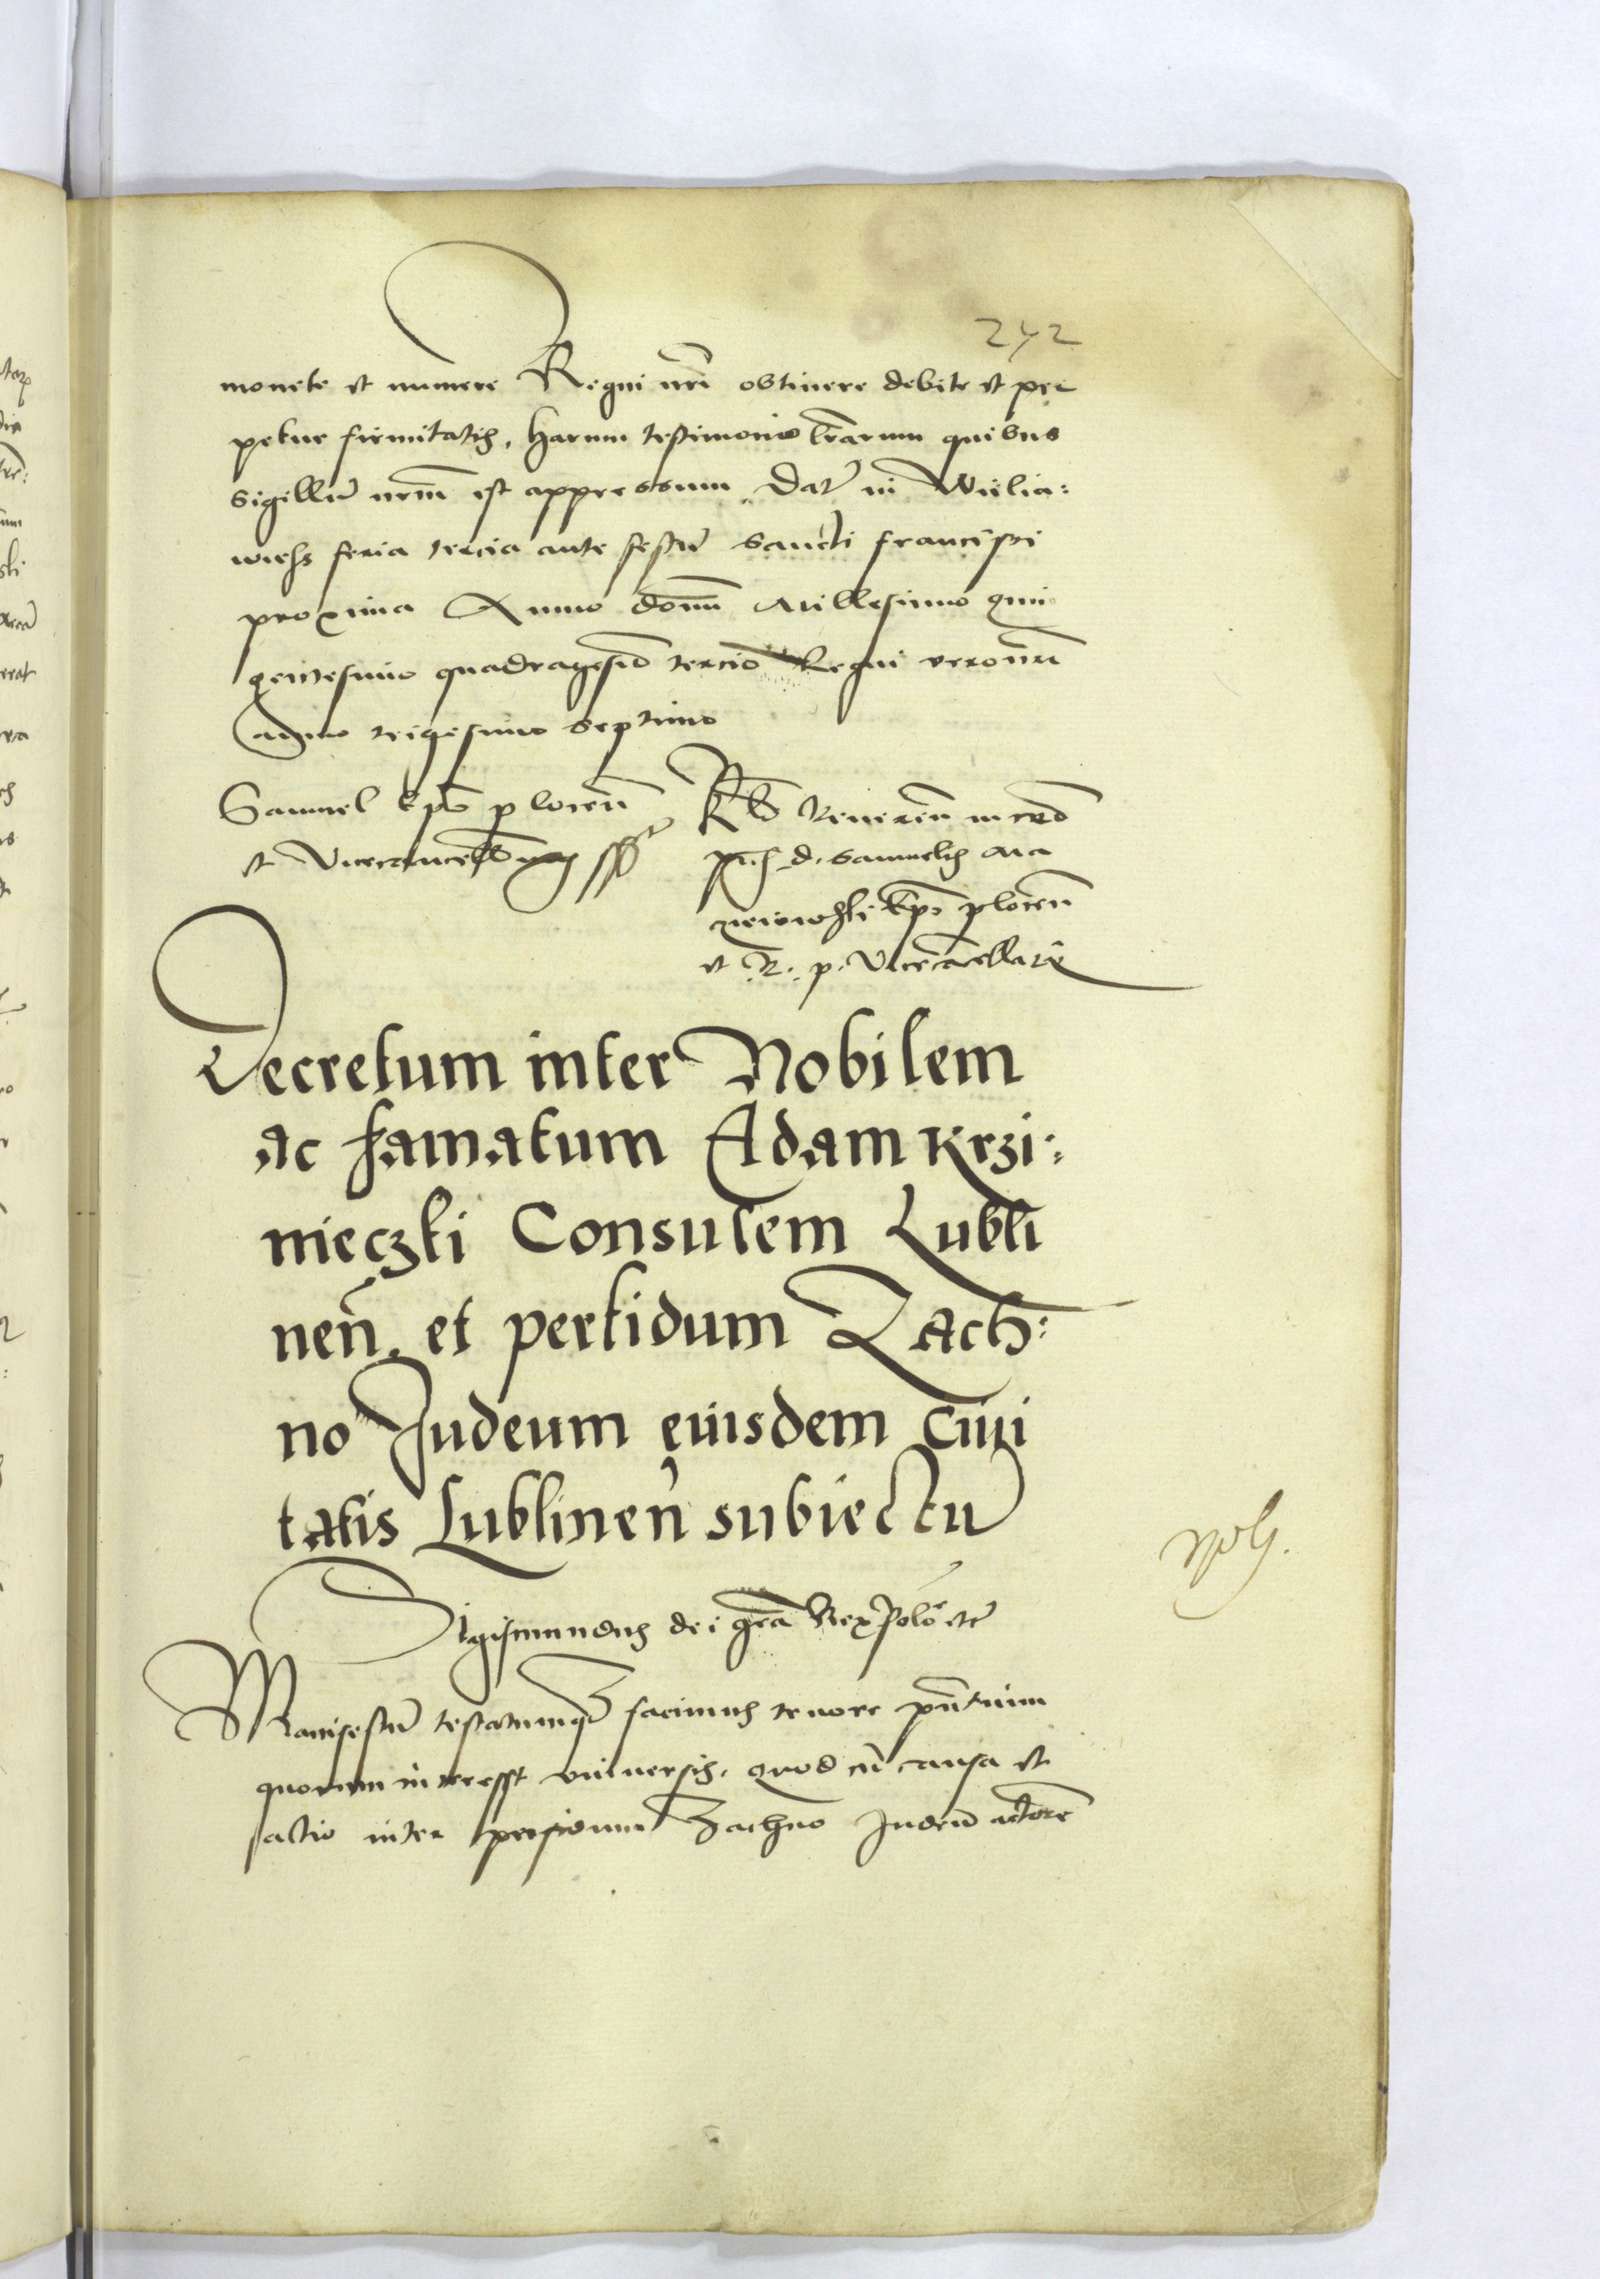 242
monete et numere Regni nrī obtinere debite et per
petue firmitatis. Harum testimonio lrārum quibus
sigillū nrm̄ est appressum. Dat̄ in Wielia:
wiess feria tercia ante festū sancti francisci
proxima Anno domī Millesimo quin
gentesimo quadragesīo tercio Regni vero nrī
anno trigesimo septimo
Samuel Ep̄s plocen̄
et Vicecancell̄ sst
R̄lō Reueren̄ in cr̄o
pr̄is d. Samuelis Ma
ciejewsski Ep̄i plocen̄
et R. p. Vicecācellarii
Decretum inter Nobilem
ac famatum Adam Krzi:
nieczki Consulem Lubli
nen̄. et perfidum Zach:
no Judeum eiusdem Ciui
tatis Lublinen̄ subiectū
Nō G.
Sigismundus dei grā Rex Polōe etc̄
Manifestū testatumqȝ facimus tenore pn̄tium
quorum interest vniuersis. quod cū causa et
actio inter perfidum Zachno Judeū actorē